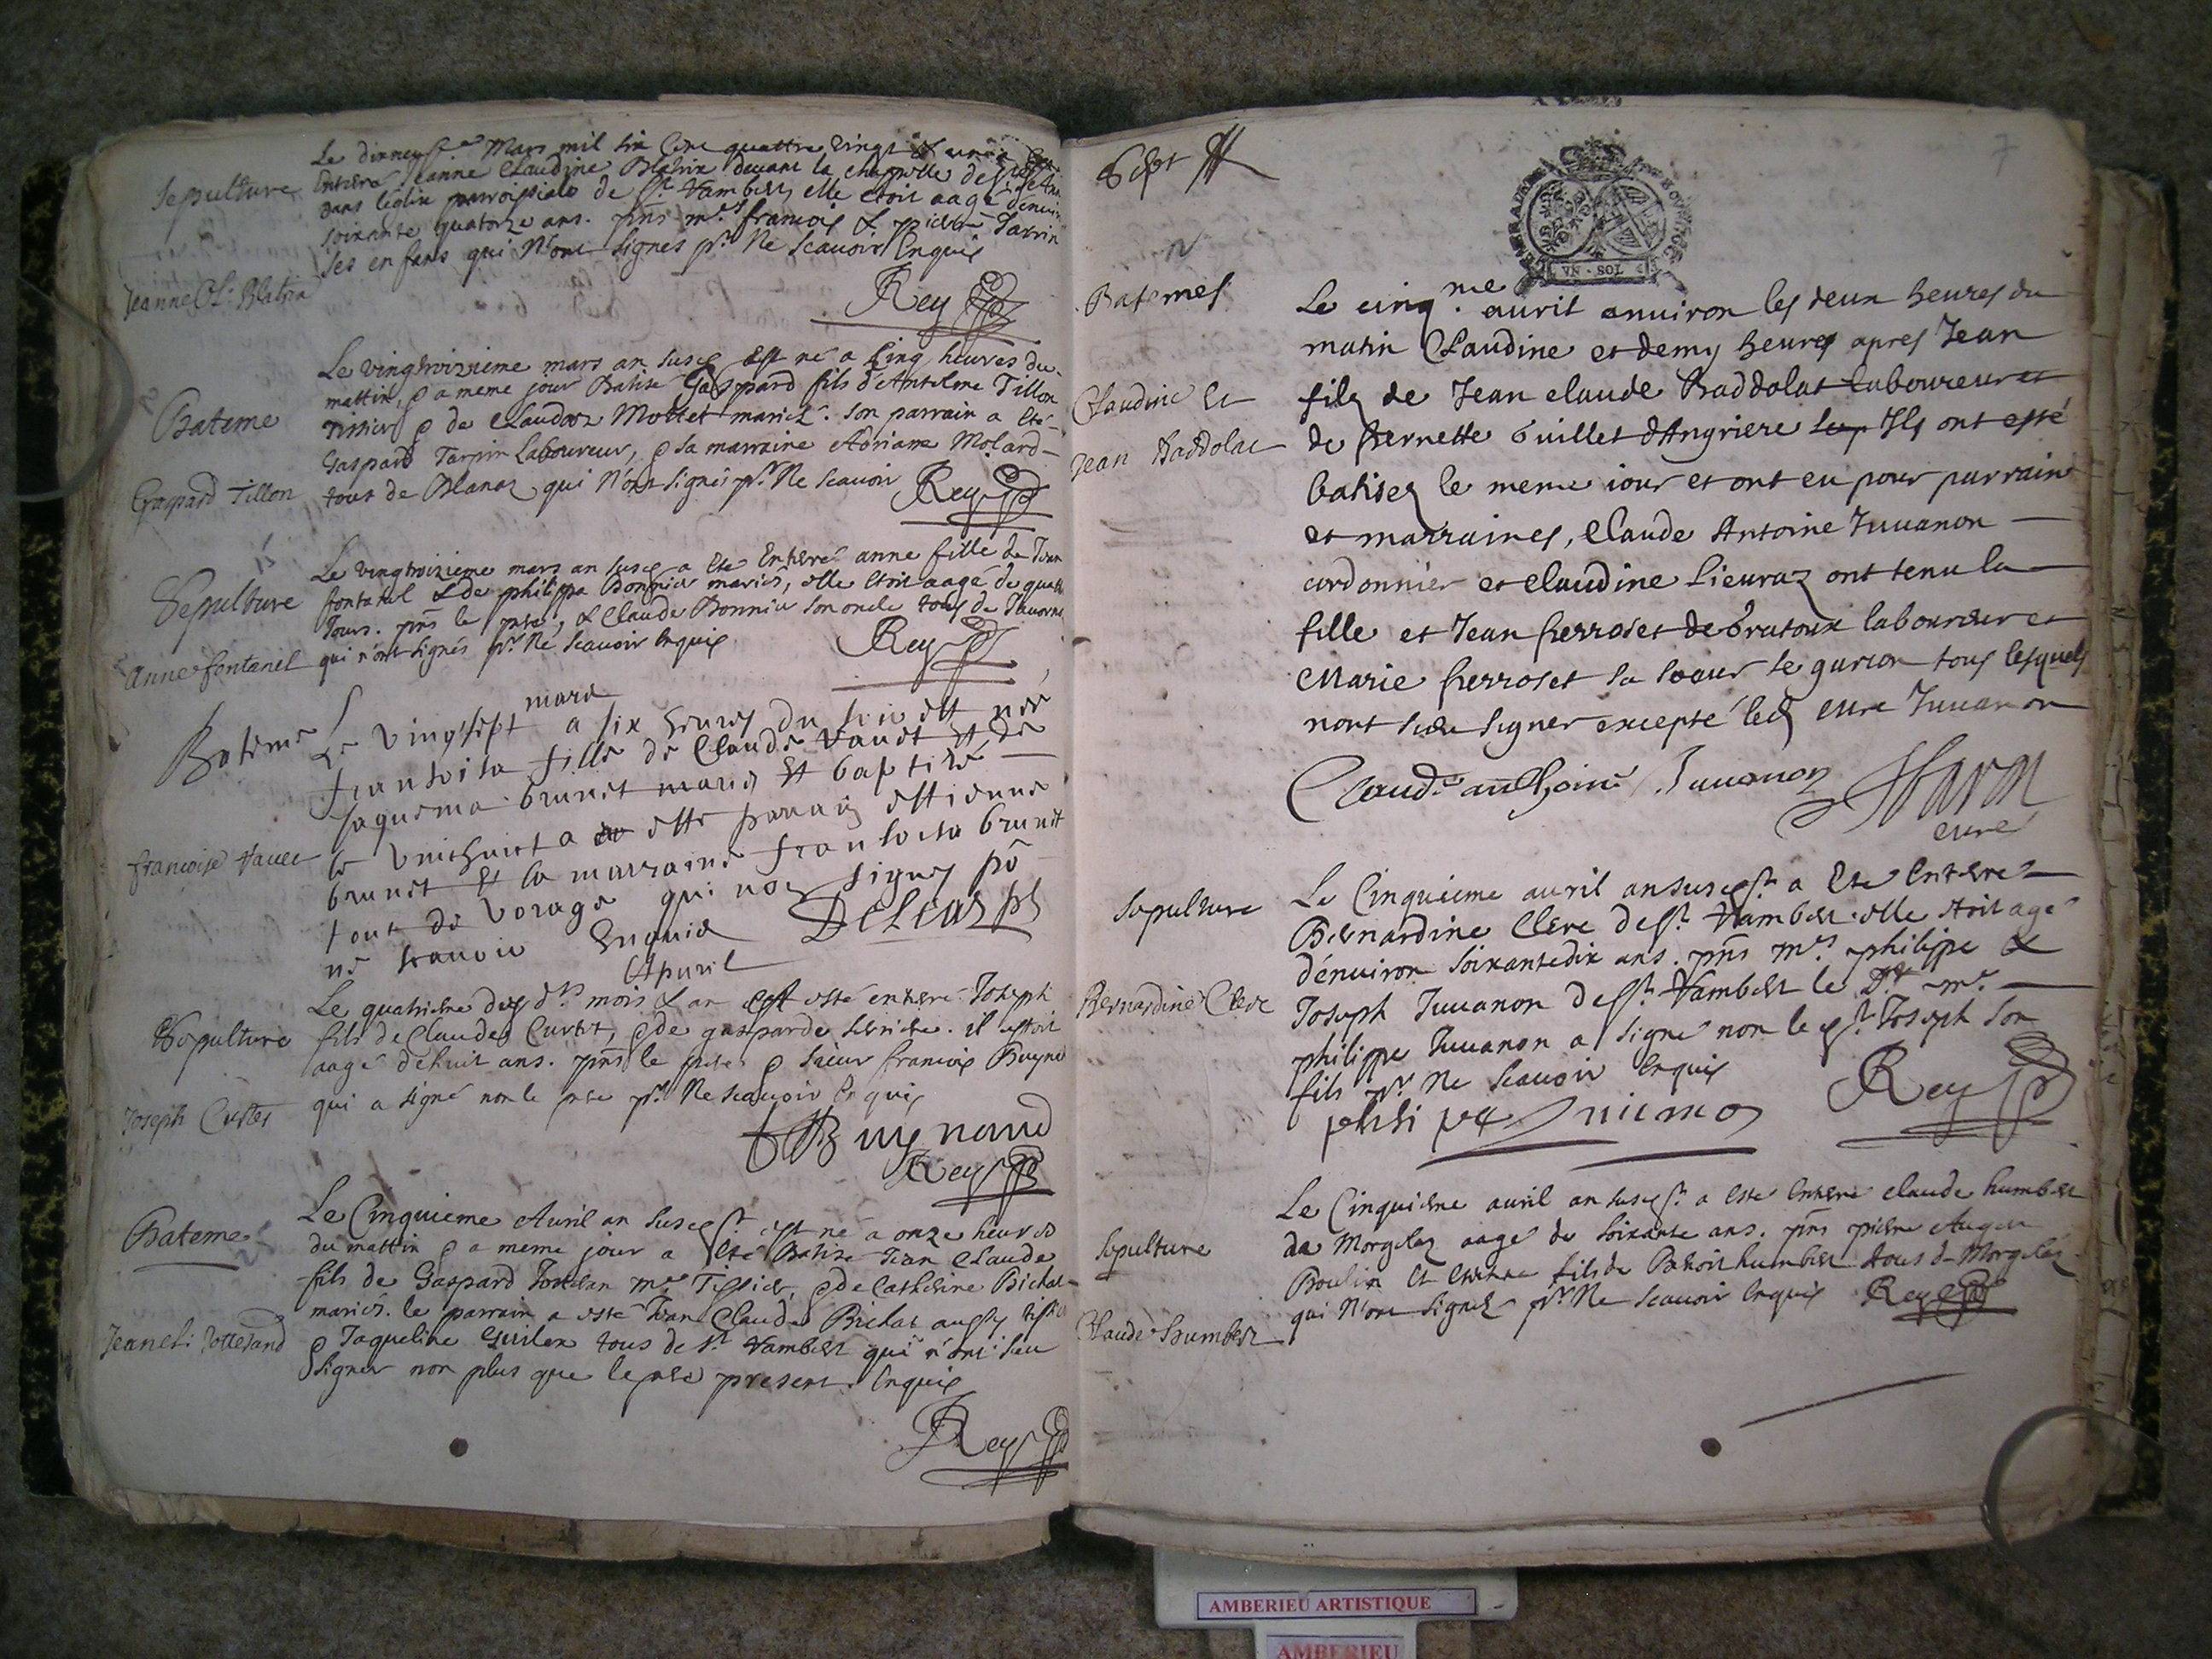 Sepulture
Jeanne Cl. Blatrin
Le dixneuf Mars mil six cent quattre vingt &
Enterré Jeanne Claudine Blatrin devant la chappelle de
dans leglise parroissiale de St Rambert, elle étoit aagé denvir
soixante quatorze ans. pnts mes francois & pierre Tarrin
ses enfans qui n'ont signes pr Ne scauoir Enquis
Rey
Bateme
Gaspard Tillon
Le vingtroizieme mars an susd Est né a Cinq heures du
mattin, & a meme jour Batisé Gaspard fils d'Antelme Tillon
Tissier & de Claudaz Mottet mariez. Son parrain a été
Gaspard Tarpin Laboureur, & sa marraine Adriane Molard
tous de Blanaz qui n'ont signés pr Ne scauoir
Rey
Sepulture
Anne fontanel
Le vingtroizieme mars an susd a été Enterré anne fille de Jean
fontanel & de philippa Bonnier mariés, elle étoit aagé de quatre
Jours. pnts le pere, & Claude Bonnier son oncle tous de
qui n'ont signés pr Ne scauoir enquis
Rey
Bateme
francoise Vauet
mars
Le vingtsept a six heures du soir est née
fransoisa fille de Claude Vauet et de
Jaquema brunet maries et baptisé
le vinthuict a este parrain estienne
brunet et la marraine fransoisa brunet
tout de vorage qui non signes po
ne scauoir Enquis
Apuril
Sepulture
Joseph Curtet
Le quatrieme des dts mois & an est esté enterré Joseph
fils de Claude Curtet, & de gasparde. il estoit
aagé dehuit ans. pnts le pere & sieur francois Buynd
qui a signé non le pere pr Ne scauoir enquis
Buynand
Rey
Bateme
Jean Cl. Jotterand
Le Cinquieme Avril an susd est né a onze heures
du mattin & a meme jour a été Batisé Jean Claude
fils de Gaspard me Tissier, & de Catherine Bichat
mariés. le parrain a esté Jean Claude Bichat aussy tissier
& Jaqueline Guilex tous de St Rambert qui n'ont sceu
Signer non plus que le pere present. Enquis
Rey
Sept
7
VN · SOL
Batemes
Claudine et
Jean Baddolat
Le cinqme. auril anuiron les deux heures du
matin Claudine et demy heures apres Jean
fils de Jean claude Baddolat laboureur et
de pernette Guillet dAngriere Ils ont esté
batises le meme iour et ont eu pour parrains
et marraines, Claude Antoine Juuanon
cordonnier et claudine Sieuraz ont tenu la
fille et Jean perroset de bratoux laboureur et
Marie perroset sa soeur le garson tous lesquels
nont sceu signer excepté led cure Juuanon
Claude anthoine Juuanon
cure
Sepulture
Bernardine Clerc
Le Cinquieme auril an susd a été Enterré
Bernardine Clerc de St Rambert. elle étoit agé
dénuiron soixantedix ans. pnts mes. philippe &
Joseph Juuanon de St Rambert le Dt me.
philippe Juuanon a signé non le Joseph son
fils pr Ne scauoir enquis
Rey
Sepulture
Claude humbert
Le Cinquième auril an susd a esté enterré claude humbert
de Morgelaz aagé de soixante ans. pnts pierre Auger
Boulin et Etienne fils de Benoit humbert tous de Morgelaz
qui N'ont signez pr Ne scauoir enquis
Rey
AMBERIEU ARTISTIQUE
AMBERIEU